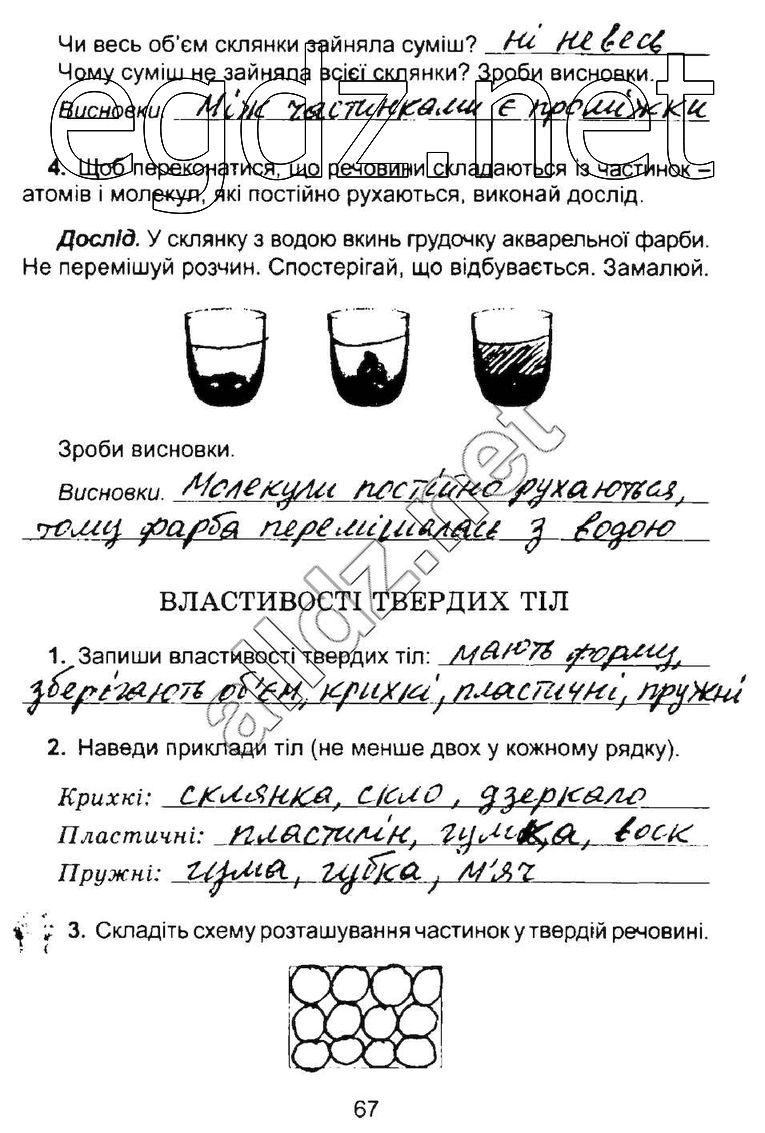 Чи весь об'єм склянки зайняла суміш? ні не весь
Чому суміш не зайняла всієї склянки? Зроби висновки.
Висновки. Між частинками є проміжки
egdz.net
4. Щоб переконатися, що речовини складаються із частинок –
атомів і молекул, які постійно рухаються, виконай дослід.
Дослід. У склянку з водою вкинь грудочку акварельної фарби.
Не перемішуй розчин. Спостерігай, що відбувається. Замалюй.
Зроби висновки.
Висновки. Молекули постійно рухаються,
тому фарба перемішалась з водою
alldz.net
ВЛАСТИВОСТІ ТВЕРДИХ ТІЛ
1. Запиши властивості твердих тіл: мають форму,
зберігають об'єм, крихкі, пластичні, пружні
2. Наведи приклади тіл (не менше двох у кожному рядку).
Крихкі: склянка, скло, дзеркало
Пластичні: пластилін, гумка, воск
Пружні: гума, губка, м'яч
3. Складіть схему розташування частинок у твердій речовині.
67